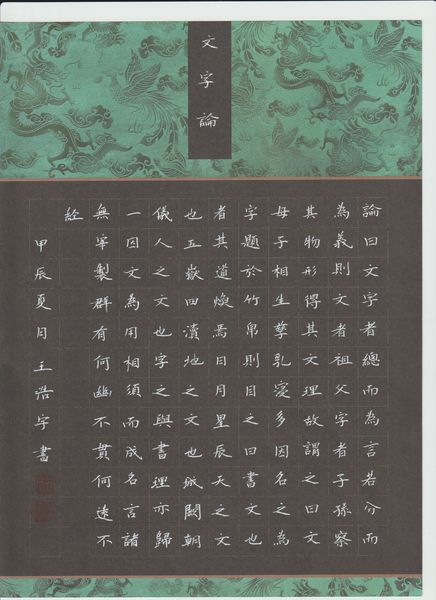 文字論
論曰文字者總而為言若分而
為義則文者祖父字者子孫察
其物形得其文理故謂之曰文
母子相生孳乳寖多因名之為
字題於竹帛則目之曰書文也
者其道煥焉日月星辰天之文
也五嶽四瀆地之文也城闕朝
儀人之文也字之與書理亦歸
一因文為用相須而成名言諸
無宰製群有何幽不貫何遠不
経
甲辰夏月王浩宇書